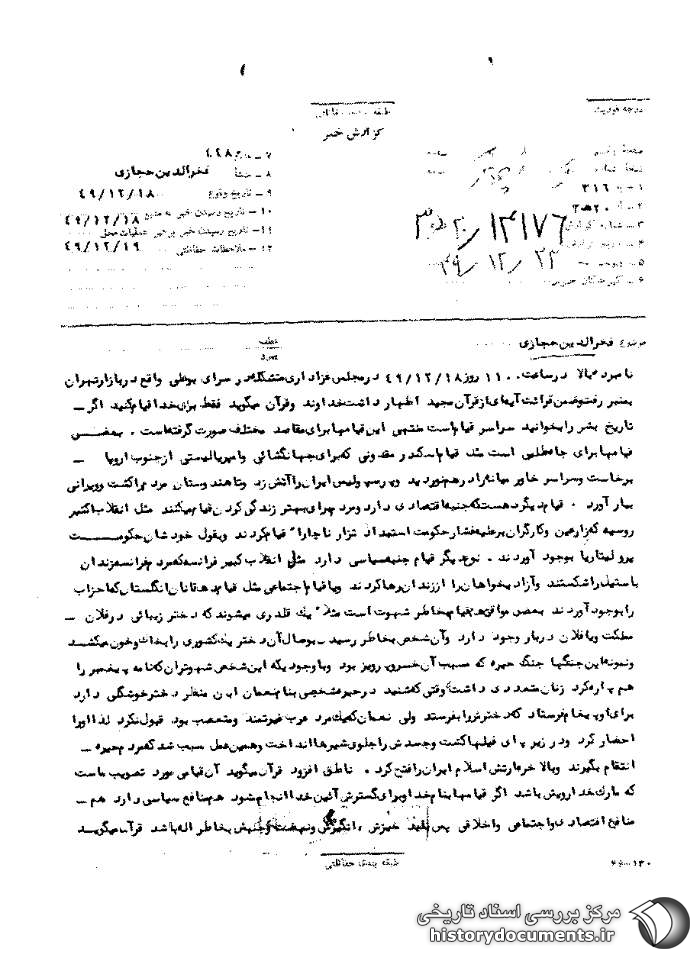 درجه فوریت
طبقه بندی حفاظتی
گزارش خبر
۱ - به ۳۱۶
۲ - از ۲۰ هـ ۳
۳ - شماره گزارش ۱۴۱۷۶/ ۲۰ هـ ۳
۴ - تاریخ گزارش
۴۹/۱۲/۲۳
۶ - گیرندگان خبر
۷ -
۸ - منشأ فخرالدین حجازی
۹ - تاریخ وقوع ۴۹/۱۲/۱۸
۱۰ - تاریخ رسیدن خبر به منبع ۴۹/۱۲/۱۸
۱۱ - تاریخ رسیدن خبر به رهبر عملیات محل ۴۹/۱۲/۱۹
۱۲ - ملاحظات حفاظتی
موضوع فخرالدین حجازی
عطف
پیرو
نامبرده بالا در ساعت ۱۱۰۰ روز ۴۹/۱۲/۱۸ در مجلس عزاداری متشکله در سرای بوعلی واقع در بازار تهران
بمنبر رفت و ضمن قرائت آیه‌ای از قرآن مجید اظهار داشت خداوند و قرآن میگوید فقط برای خدا قیام کنید اگر -
تاریخ بشر را بخوانید سراسر قیام است منتهی این قیامها برای مقاصد مختلف صورت گرفته است . بعضی
قیامها برای جاه‌طلبی است مثل قیام اسکندر مقدونی که برای جهانگشائی و امپریالیستی از جنوب اروپا -
برخاست و سراسر خاور میانه را در هم نوردید و پرسپولیس ایران را آتش زد و تا هندوستان مردم را کشت و ویرانی
ببار آورد . قیام دیگر هست که جنبه اقتصادی دارد و مردم برای بهتر زندگی کردن قیام میکنند مثل انقلاب اکتبر
روسیه که زارعین و کارگران بر علیه فشار حکومت استبداد تزار ناچاراً قیام کردند و بقول خودشان حکومت
پرولیتاریا بوجود آوردند . نوع دیگر قیام جنبه سیاسی دارد مثل انقلاب کبیر فرانسه که مردم فرانسه زندان
باستیل را شکستند و آزادیخواهان را از زندان رها کردند و یا قیام اجتماعی مثل قیام دهقانان انگلستان که احزاب
را بوجود آوردند بعضی مواقع هم قیام بخاطر شهوت است مثلاً یک قلدری میشنود که دختر زیبائی در فلان -
مملکت و یا فلان دربار وجود دارد و آن شخص بخاطر رسیدن بوصال آن دختر یک کشوری را بخاک و خون میکشد
و نمونه این جنگها جنگ حیره که مسبب آن خسرو پرویز بود و با وجودیکه این شخص شهوتران که نامه پیغمبر را
هم پاره کرد زنان متعددی داشت وقتی که شنید در حیره شخصی بنام نعمان ابن منظر دختر خوشگلی دارد
برای او پیغام فرستاد که دخترش را بفرستد ولی نعمان که یک مرد عرب غیرتمند و متعصب بود قبول نکرد لذا او را
احضار کرد و در زیر پای فیلها کشت و جسدش را جلوی شیرها انداخت و همین عمل سبب شد که مردم حیره -
انتقام بگیرند و بالاخره ارتش اسلام ایران را فتح کرد . ناطق افزود قرآن میگوید آن قیامی مورد تصویب ماست
که مارک خدا رویش باشد اگر قیامها بنام خدا و برای گسترش آئین خدا انجام شود هم منافع سیاسی دارد هم -
منافع اقتصادی و اجتماعی و اخلاقی پس باید خیزش ، انگیزش و نهضت و جنبش بخاطر اله باشد قرآن میگوید
طبقه بندی حفاظتی
مرکز بررسی اسناد تاریخی
historydocuments.ir